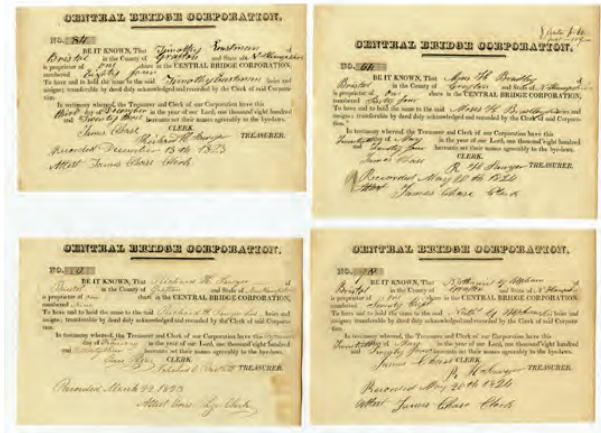 CENTRAL BRIDGE CORPORATION.
NO. 84
BE IT KNOWN, That Timothy Eastman of
Bristol in the County of Grafton and State of N. Hampshire
is proprietor of one share in the CENTRAL BRIDGE CORPORATION,
numbered Eighty four
To have and to hold the same to the said Timothy Eastman heirs and
assigns; transferable by deed duly acknowledged and recorded by the Clerk of said Corporation.
In testimony whereof, the Treasurer and Clerk of our Corporation have this
day of December in the year of our Lord, one thousand eight hundred
and Twenty three hereunto set their names agreeably to the bye-laws.
James Chase CLERK.
Richard H. Sawyer TREASURER.
Recorded December 13th 1823
Attest James Chase Clerk
CENTRAL BRIDGE CORPORATION.
NO. 64
BE IT KNOWN, That Moses H Bradley of
Bristol in the County of Grafton and State of N. Hampshire
is proprietor of one share in the CENTRAL BRIDGE CORPORATION,
numbered Sixty four
To have and to hold the same to the said Moses H. Bradley heirs and
assigns; transferable by deed duly acknowledged and recorded by the Clerk of said Corporation.
In testimony whereof, the Treasurer and Clerk of our Corporation have this
day of May in the year of our Lord, one thousand eight hundred
and Twenty four hereunto set their names agreeably to the bye-laws.
James Chase CLERK.
R. H. Sawyer TREASURER.
Recorded May 20th 1824
Attest James Chase Clerk
CENTRAL BRIDGE CORPORATION.
NO.
BE IT KNOWN, That Richard H. Sawyer of
Bristol in the County of Grafton and State of New Hampshire
is proprietor of one share in the CENTRAL BRIDGE CORPORATION,
numbered Nine
To have and to hold the same to the said Richard H. Sawyer his heirs and
assigns; transferable by deed duly acknowledged and recorded by the Clerk of said Corporation.
In testimony whereof, the Treasurer and Clerk of our Corporation have this
day of February in the year of our Lord, one thousand eight hundred
and hereunto set their names agreeably to the bye-laws.
CLERK.
TREASURER.
Recorded March 22 1823
Attest Clerk
CENTRAL BRIDGE CORPORATION.
NO. 78
BE IT KNOWN, That Nathaniel G Upham of
Bristol in the County of Grafton and State of N. Hampshire
is proprietor of one share in the CENTRAL BRIDGE CORPORATION,
numbered Seventy Eight
To have and to hold the same to the said Nathl G Upham heirs and
assigns; transferable by deed duly acknowledged and recorded by the Clerk of said Corporation.
In testimony whereof, the Treasurer and Clerk of our Corporation have this
day of May in the year of our Lord, one thousand eight hundred
and Twenty four hereunto set their names agreeably to the bye-laws.
James Chase CLERK.
R. H Sawyer TREASURER.
Recorded May 20th 1824
Attest James Chase Clerk